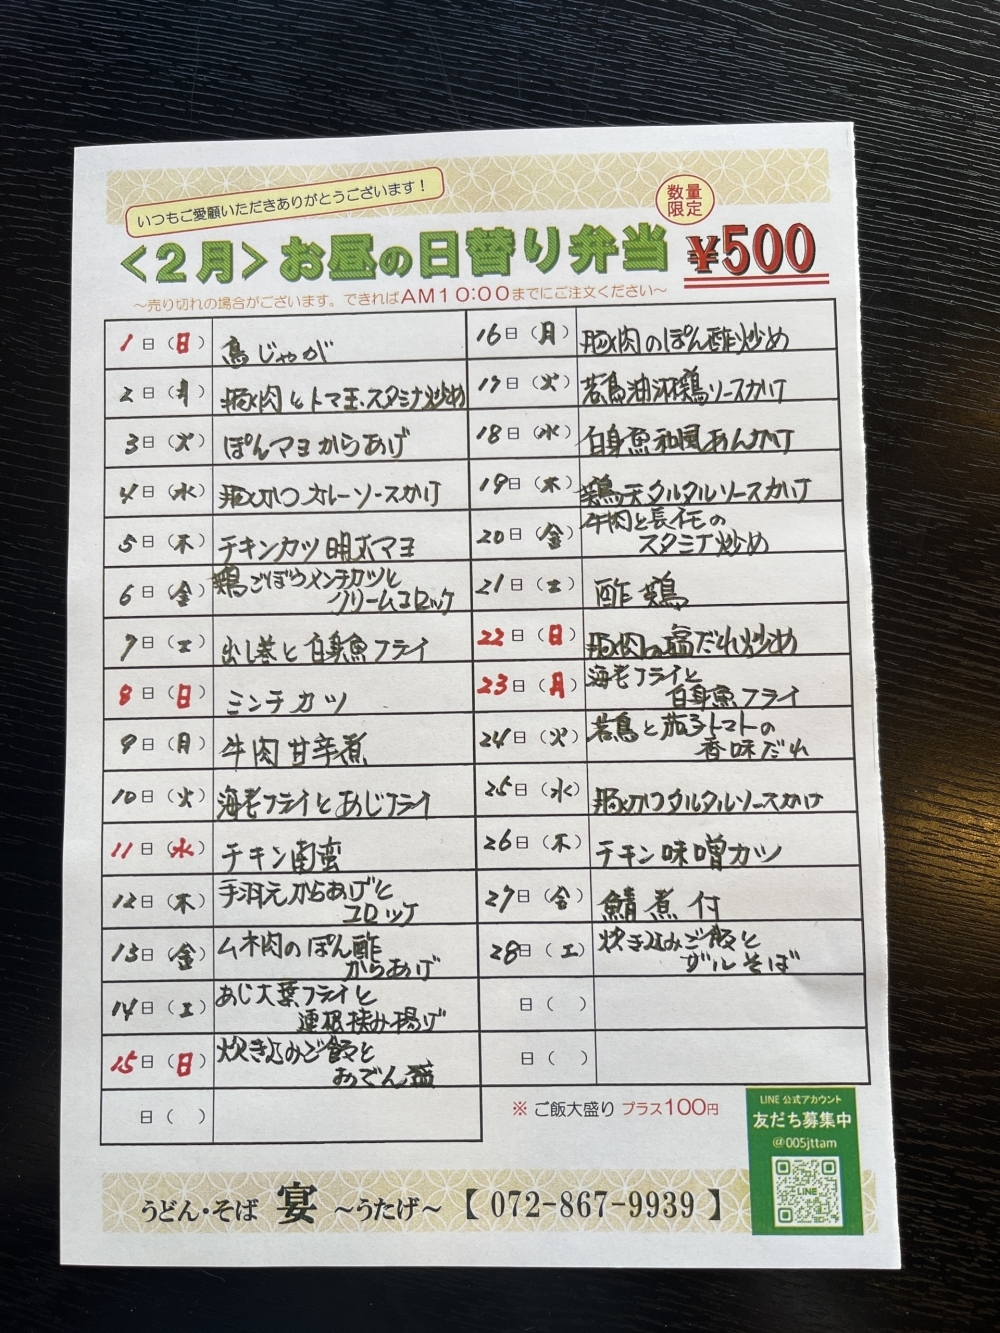 いつもご愛顧いただきありがとうございます！
数量
限定
<2月>お昼の日替り弁当 ¥500
～売り切れの場合がございます。できればAM10:00までにご注文ください～
1日(日) 鳥じゃが
2日(月) 豚肉とトマ玉スタミナ炒め
3日(火) ぽんマヨからあげ
4日(水) 豚かつカレーソースかけ
5日(木) チキンカツ明太マヨ
6日(金) 鶏ごぼうメンチカツと
クリームコロッケ
7日(土) 出し巻と白身魚フライ
8日(日) ミンチカツ
9日(月) 牛肉甘辛煮
10日(火) 海老フライとあじフライ
11日(水) チキン南蛮
12日(木) 手羽元からあげと
コロッケ
13日(金) ムネ肉のぽん酢
からあげ
14日(土) あじ大葉フライと
蓮根挟み揚げ
15日(日) 炊き込みご飯と
おでん盛
日( )
16日(月) 豚肉のぽん酢炒め
17日(火) 若鳥油淋鶏ソースかけ
18日(水) 白身魚和風あんかけ
19日(木) 鶏天タルタルソースかけ
20日(金) 牛肉と長イモの
スタミナ炒め
21日(土) 酢鶏
22日(日) 豚肉の塩だれ炒め
23日(月) 海老フライと
白身魚フライ
24日(火) 若鳥と茄子トマトの
香味だれ
25日(水) 豚かつタルタルソースかけ
26日(木) チキン味噌カツ
27日(金) 鯖煮付
28日(土) 炊き込みご飯と
ザルそば
日( )
日( )
※ ご飯大盛り プラス100円
LINE 公式アカウント
友だち募集中
@005jttam
LINE
うどん・そば 宴 ～うたげ～ 【072-867-9939】